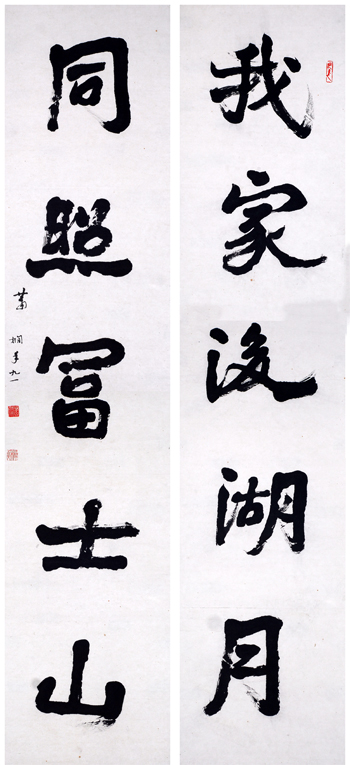 我家後湖月
同照冨士山
蕭嫻年九一